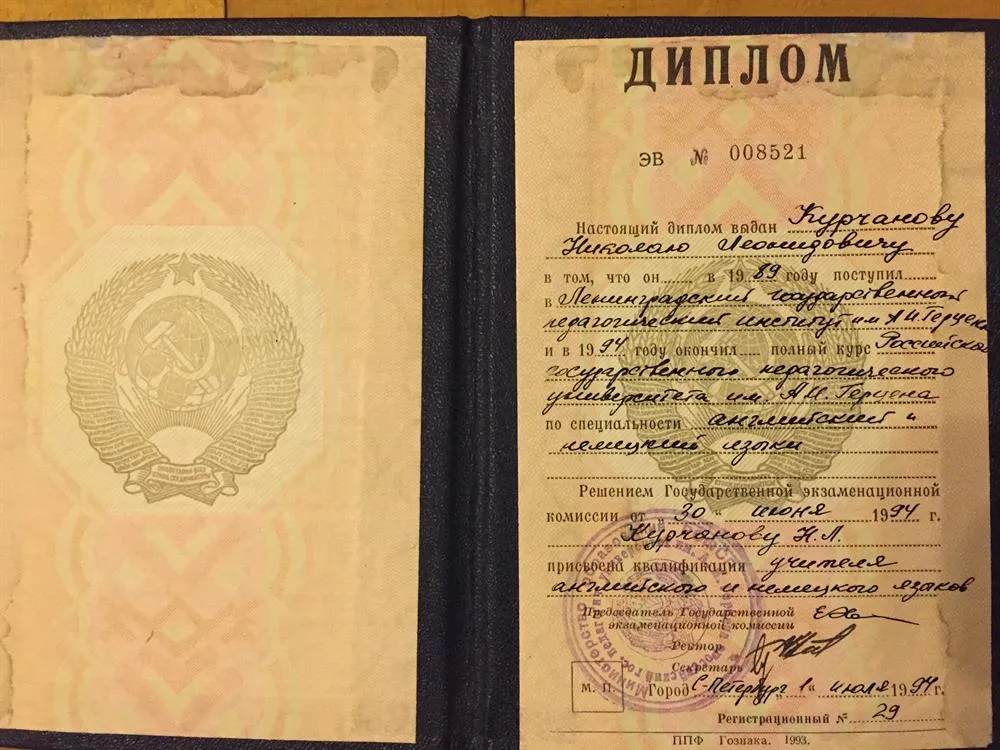 ДИПЛОМ
ЭВ № 008521
Настоящий диплом выдан Курчанову
Николаю Леонидовичу
в том, что он в 1989 году поступил
в Ленинградский государственный
педагогический институт им А.И.Герцена
и в 1994 году окончил полный курс Российского
государственного педагогического
университета им. А.И. Герцена
по специальности английский и
немецкий языки
Решением Государственной экзаменационной
комиссии от „30“ июня 1994 г.
Курчанову Н.Л.
присвоена квалификация учителя
английского и немецкого языков
Председатель Государственной
экзаменационной комиссии
Ректор
Секретарь
М. П. Город С-Петербург „1“ июля 1994 г.
Регистрационный № 29
ППФ Гознака. 1993.